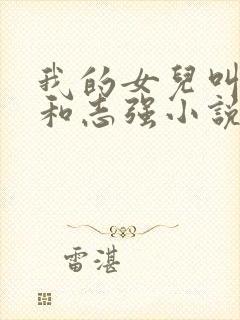 我的女兒叫
和志强小說
雷湛